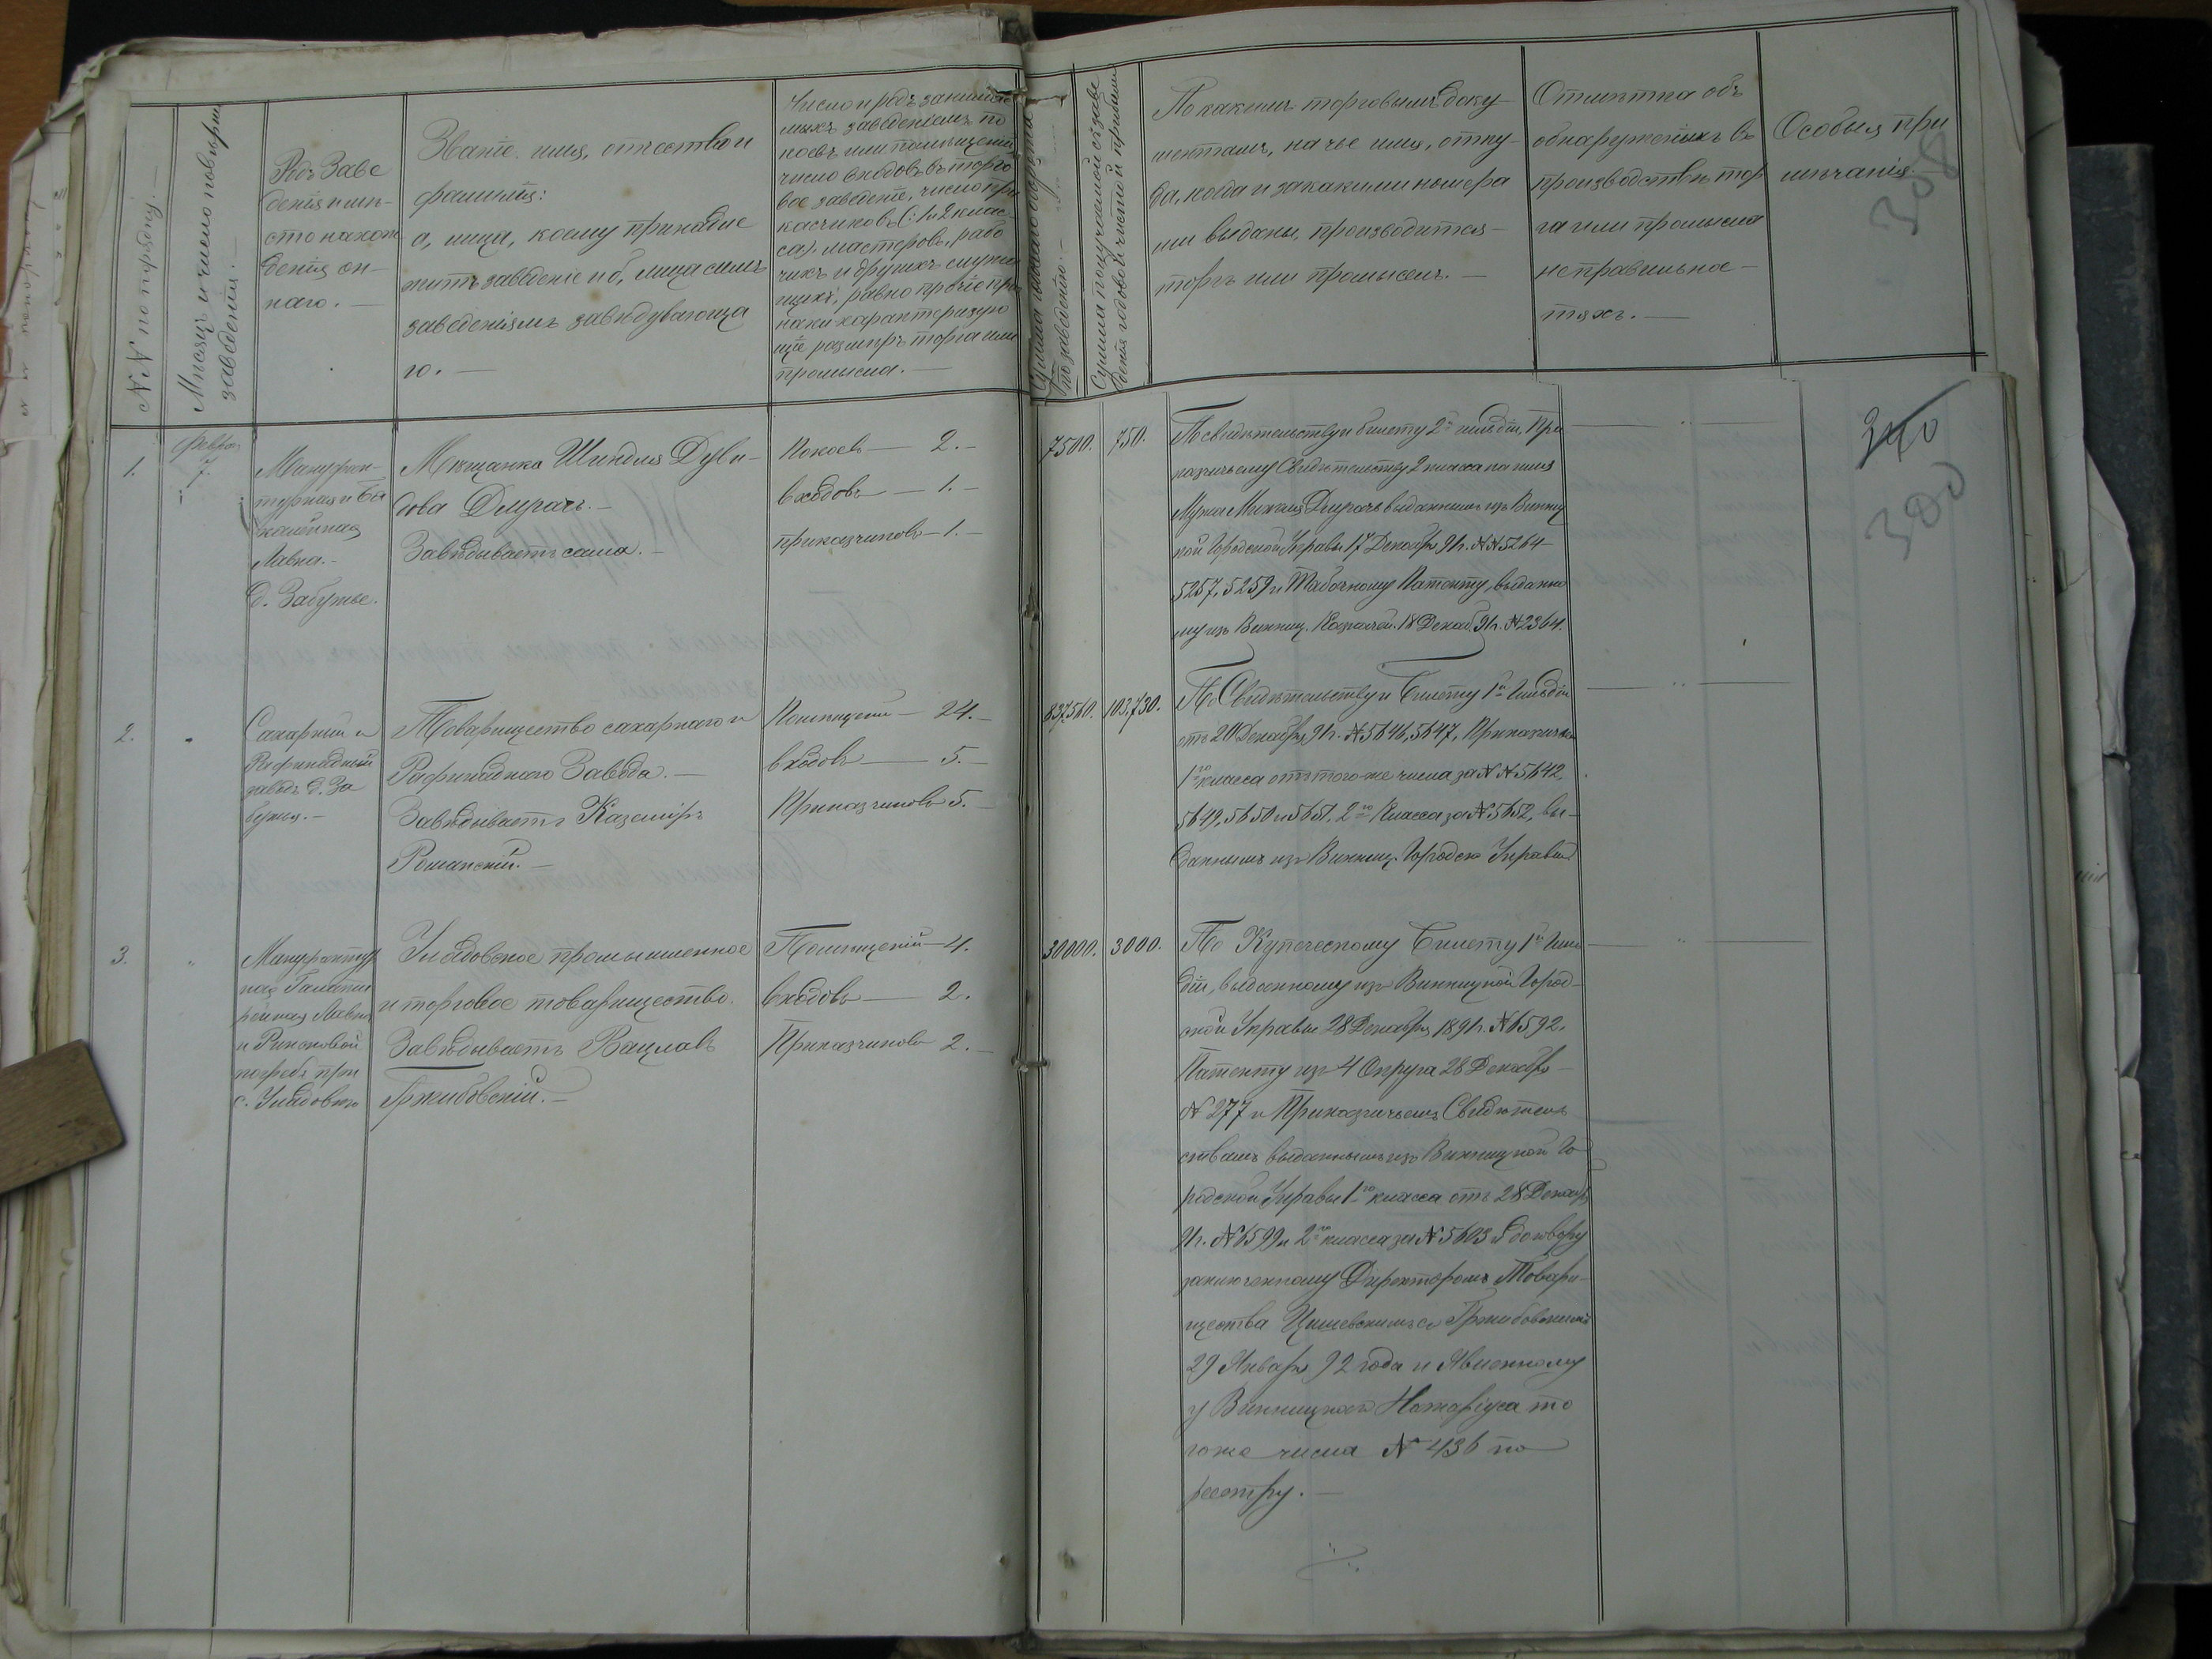 №№ по порядку. —
Мѣсяцъ и число повѣрки
заведенія. —
Родъ Заве
денія и мѣ-
сто нахож
денія он-
наго. —
Званіе, имя, отчество и
фамилія:
а, лица, коему принадле
житъ заведеніе и б, лица симъ
заведеніямъ завѣдывающа
го. —
Число и родъ занимае
мыхъ заведеніемъ по
коевъ или помѣщеній
число входовъ въ торго
вое заведеніе, число при
касчиковъ (: 1 и 2 клас-
са), мастеровъ, рабо
чихъ и другихъ служа
щихъ, равно прочіе приз
наки характеризую
щіе размѣръ торга или
промысла. —
Сумма
по заведенію. —
Сумма получаемой съ заве
денія годовой чистой прибыли
По какимъ торговымъ доку-
ментамъ, на чье имя, отку-
да, когда и за какими номера
ми выданы, производится —
торгъ или промыселъ. —
Отмѣтка объ
обнаруженыхъ въ
производствѣ тор
га или промысла
неправильнос-
тяхъ. —
Особыя при
мѣчанія.
308
1.
Февра.
7.
Мануфак-
турная и Ба
калейная
Лавка. —
д. Забужье.
Мѣщанка Шиндля Дуви-
дова Дмрачъ. —
Завѣдываетъ сама. —
Покоевъ — 2. —
входовъ — 1. —
приказчиковъ — 1. —
7500.
750.
По свидѣтельству и билету 2й гильдіи, При
казчьему Свидѣтельству 2 класса на имя
Мужа Михаля Дмрачъ выданнымъ изъ Винниц
кой Городской Управы 17 Декабря 91г. №№ 5264
5257, 5259 и Табачному Патенту, выданно
му изъ Винниц. Казначей. 18 Декаб. 91г. № 2364.
300
2.
Сахарный и
Рафинадный
заводъ д. За
бужья. —
Товарищество сахарнаго и
Рафинаднаго Завода. —
Завѣдываетъ Казимиръ
Романскій. —
Помѣщеній — 24. —
входовъ — 5. —
Приказчиковъ 5. —
837,560.
103,730.
По Свидѣтельству и Билету 1й Гильдіи
отъ Декабря 91г. № 5646, 5647, Приказчичьи
1го класса отъ того же числа за №№ 5642,
5649, 5650 и 5651, 2го Класса за № 5652, вы-
даннымъ изъ Винниц. Городск. Управы
3.
Мануфактур
ная Галанте
рейная Лавка
и Ренсковой
погребъ при
с. Уладовкѣ
Уладовское промышленное
и торговое товарищество.
Завѣдываетъ Вацлавъ
Гржибовскій. —
Помѣщеній — 4.
входовъ — 2.
Приказчиковъ 2. —
30000.
3000.
По Купеческому Билету 1й Гиль
діи, выданному изъ Винницкой Город-
ской Управы 28 Декабря 1891г. № 6592.
Патенту изъ 4 Округа 28 Декабря —
№ 277 и Приказчьимъ Свидѣтель
ствамъ выданнымъ изъ Винницкой Го
родской Управы 1го класса отъ 28 Декабр
91г. № 6599 и 2го класса за № 5603 и договору
заключенному Директоромъ Товари-
щества съ Гржибовскимъ
29 Января 92 года и Явленному
у Винницкаго Нотаріуса то
гоже числа № 436 по
реестру. —